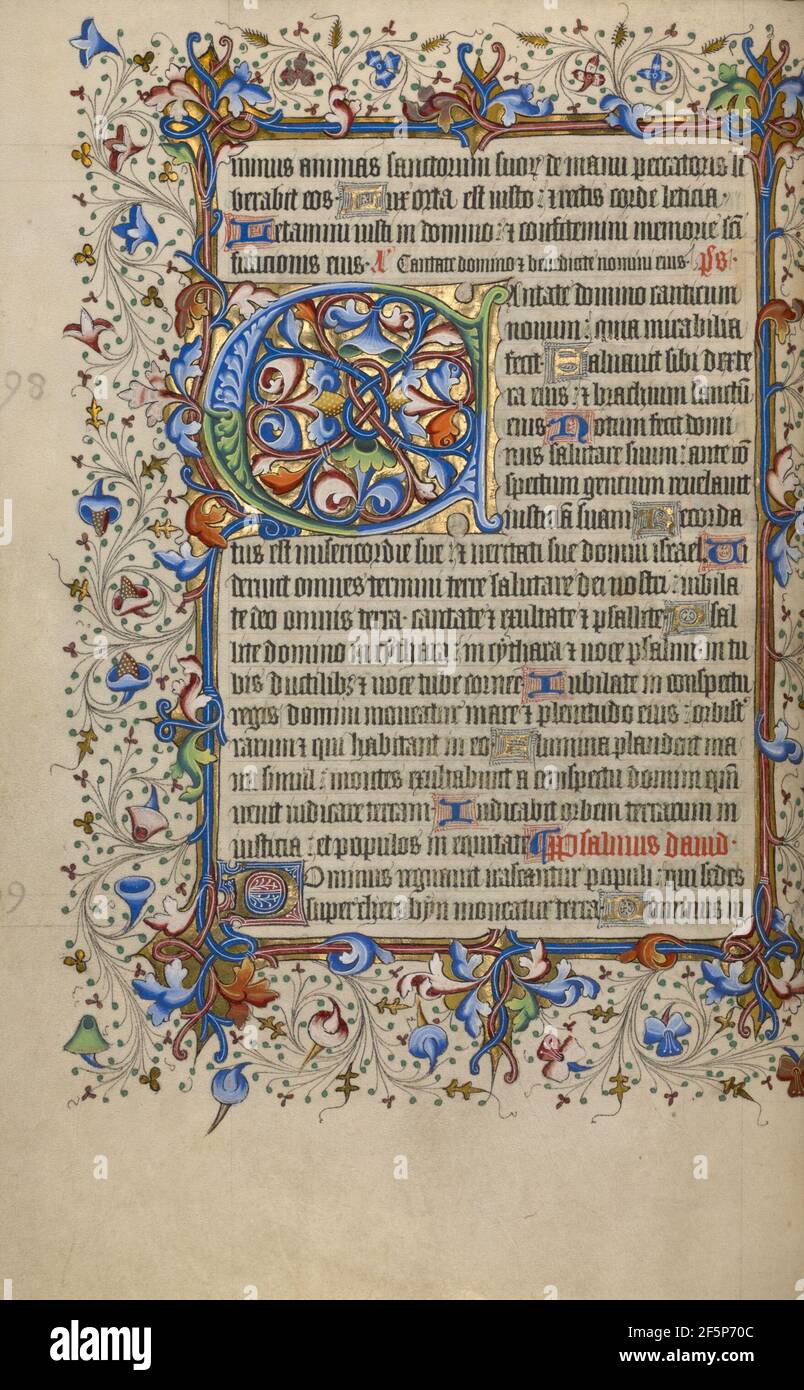 minus animas sanctorum suoꝝ de manu peccatoris li
berabit eos. Lux orta est iusto: ⁊ rectis corde leticia.
Letamini iusti in domino: ⁊ confitemini memorie scī
ficacionis eius. Cantate domino ⁊ benedicite nomini eius. ps.
CAntate domino canticum
nouum: quia mirabilia
fecit. Saluauit sibi dexte
ra eius: ⁊ brachium sanctū
eius. Notum fecit domi
nus salutare suum: ante cō
spectum gencium reuelauit
iusticiā suam. Recorda
tus est misericordie sue: ⁊ ueritati sue domui israel. Ui
derunt omnes termini terre salutare dei nostri. iubila
te deo omnis terra. cantate ⁊ exultate ⁊ psallite. Psal
lite domino in cythara: in cythara ⁊ uoce psalmi: in tu
bis ductilibꝫ ⁊ uoce tube cornee. Iubilate in conspectu
regis domini moueatur mare ⁊ plenitudo eius: orbis tr̄
rarum ⁊ qui habitant in eo. Flumina plaudent ma
nu simul: montes exultabunt a conspectu domini qm̄
uenit iudicare terram. Iudicabit orbem terrarum in
iusticia: et populos in equitate. Psalmus dauid.
DOminus regnauit irascantur populi: qui sedes
super cherubyn moueatur terra. Dominus in
98
99
alamy
a
alamy
Image ID: 2F5P70C
www.alamy.com